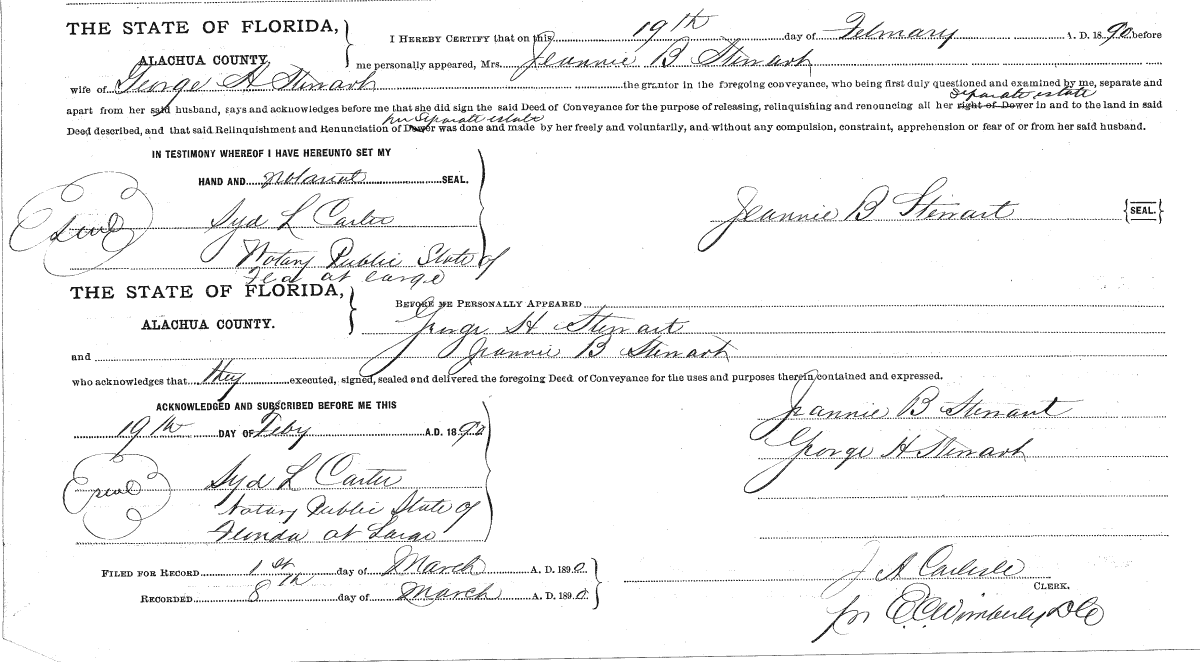 THE STATE OF FLORIDA,
ALACHUA COUNTY.
I HEREBY CERTIFY that on this 19th day of February A. D. 1890 before
me personally appeared, Mrs. Jeannie B Stewart
wife of George H Stewart the grantor in the foregoing conveyance, who being first duly questioned and examined by me, separate and
separate estate
apart from her said husband, says and acknowledges before me that she did sign the said Deed of Conveyance for the purpose of releasing, relinquishing and renouncing all her right of Dower in and to the land in said
her separate estate
Deed described, and that said Relinquishment and Renunciation of Dower was done and made by her freely and voluntarily, and without any compulsion, constraint, apprehension or fear of or from her said husband.
IN TESTIMONY WHEREOF I HAVE HEREUNTO SET MY
HAND AND notarial SEAL.
Seal Syd L Carter
Jeannie B Stewart {SEAL.}
Notary Public State of
Fla at large
THE STATE OF FLORIDA,
ALACHUA COUNTY.
BEFORE ME PERSONALLY APPEARED
George H Stewart
and Jeannie B Stewart
who acknowledges that they executed, signed, sealed and delivered the foregoing Deed of Conveyance for the uses and purposes therein contained and expressed.
ACKNOWLEDGED AND SUBSCRIBED BEFORE ME THIS
19th DAY OF Feby A.D. 1890
Jeannie B Stewart
George H Stewart
Seal Syd L Carter
Notary Public State of
Florida at Large
FILED FOR RECORD 1st day of March A. D. 1890
RECORDED 8th day of March A. D. 1890
J A Carlisle
CLERK.
per E.C. Wimberly DC